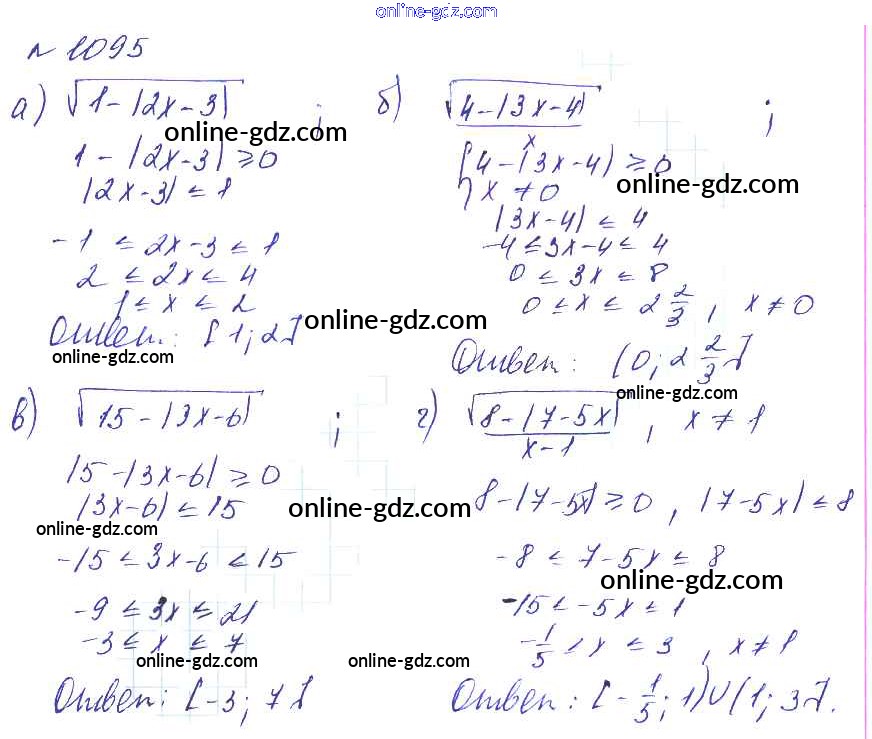 online-gdz.com
№ 1095
а) √(1-|2x-3|) ;
online-gdz.com
1-|2x-3| ≥ 0
|2x-3| ≤ 1
-1 ≤ 2x-3 ≤ 1
2 ≤ 2x ≤ 4
1 ≤ x ≤ 2
online-gdz.com
Ответ: [1; 2]
online-gdz.com
б) √(4-|3x-4|) / x ;
{ 4-|3x-4| ≥ 0
x ≠ 0
online-gdz.com
|3x-4| ≤ 4
-4 ≤ 3x-4 ≤ 4
0 ≤ 3x ≤ 8
0 ≤ x ≤ 2 2/3 , x ≠ 0
Ответ: (0; 2 2/3]
online-gdz.com
в) √(15-|3x-6|) ;
15-|3x-6| ≥ 0
|3x-6| ≤ 15
online-gdz.com
online-gdz.com
-15 ≤ 3x-6 ≤ 15
-9 ≤ 3x ≤ 21
-3 ≤ x ≤ 7
online-gdz.com
Ответ: [-3; 7]
г) √(8-|7-5x|) / (x-1) , x ≠ 1
8-|7-5x| ≥ 0 , |7-5x| ≤ 8
-8 ≤ 7-5x ≤ 8
online-gdz.com
-15 ≤ -5x ≤ 1
-1/5 ≤ x ≤ 3 , x ≠ 1
online-gdz.com
online-gdz.com
Ответ: [-1/5; 1)∪(1; 3].